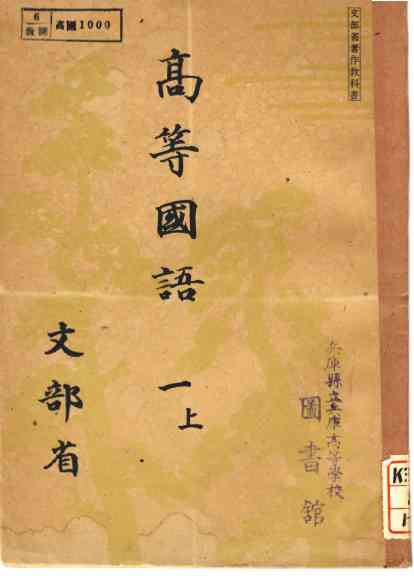 文部省著作教科書
6
高國1000
高等國語
一上
文部省
兵庫縣立兵庫高等學校
圖書館